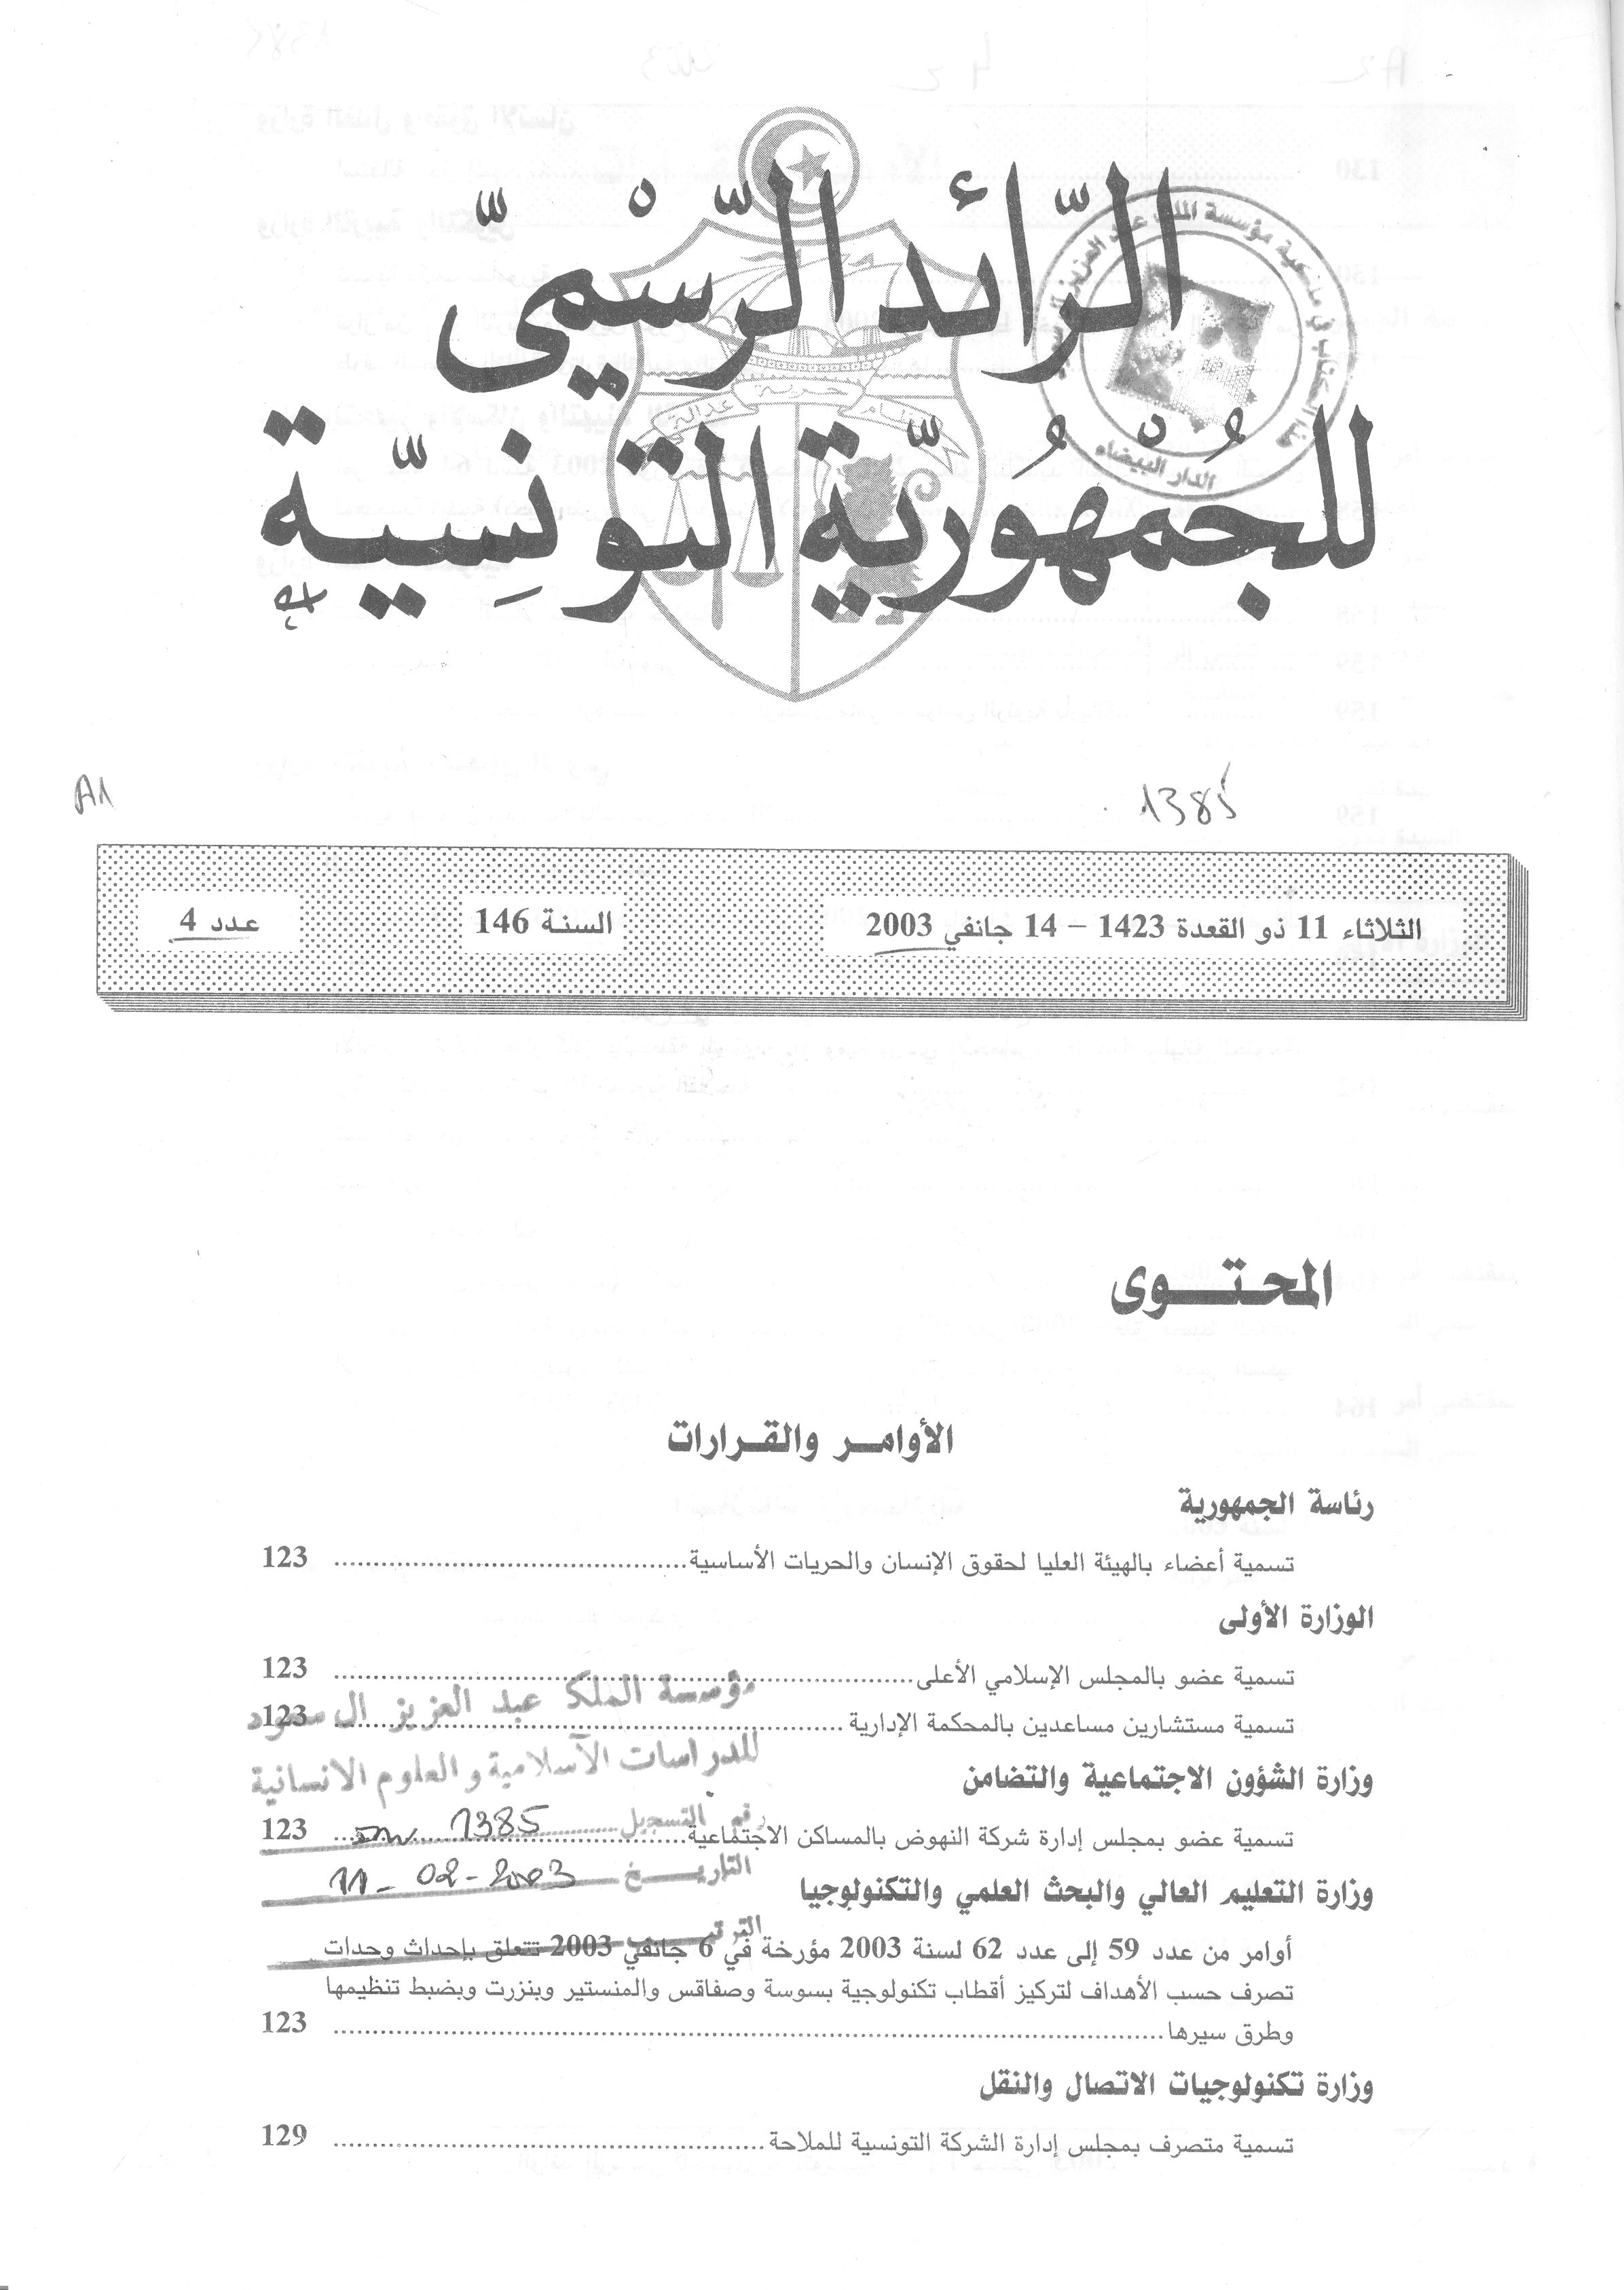 الرّائد الرّسْميّ
للجُمْهُوريّة التّونِسيّة
نظام حرية عدالة
الدار البيضاء
A1
1385
الثلاثاء 11 ذو القعدة 1423 – 14 جانفي 2003
السنة 146
عدد 4
المحتوى
الأوامر والقرارات
رئاسة الجمهورية
تسمية أعضاء بالهيئة العليا لحقوق الإنسان والحريات الأساسية 123
الوزارة الأولى
تسمية عضو بالمجلس الإسلامي الأعلى 123
مؤسسة الملك عبد العزيز ال سعود
تسمية مستشارين مساعدين بالمحكمة الإدارية 123
للدراسات الآسلامية و العلوم الانسانية
وزارة الشؤون الاجتماعية والتضامن
رقم التسجيل 1385
تسمية عضو بمجلس إدارة شركة النهوض بالمساكن الاجتماعية 123
التاريخ 11-02-2003
وزارة التعليم العالي والبحث العلمي والتكنولوجيا
الترتيب
أوامر من عدد 59 إلى عدد 62 لسنة 2003 مؤرخة في 6 جانفي 2003 تتعلق بإحداث وحدات
تصرف حسب الأهداف لتركيز أقطاب تكنولوجية بسوسة وصفاقس والمنستير وبنزرت وبضبط تنظيمها
وطرق سيرها 123
وزارة تكنولوجيات الاتصال والنقل
تسمية متصرف بمجلس إدارة الشركة التونسية للملاحة 129